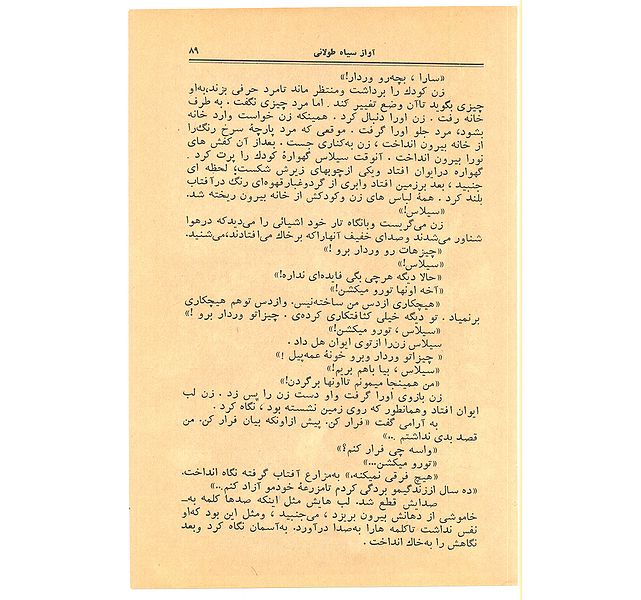 آواز سیاه طولانی
۸۹
«سارا ، بچه‌رو وردار!»
زن کودك را برداشت ومنتظر ماند تامرد حرفی بزند،به‌او
چیزی بگوید تاآن وضع تغییر کند . اما مرد چیزی نگفت . به طرف
خانه رفت . زن اورا دنبال کرد . همینکه زن خواست وارد خانه
بشود، مرد جلو اورا گرفت . موقعی که مرد پارچهٔ سرخ رنگ‌را
از خانه بیرون انداخت ، زن به‌کناری جست . بعداز آن کفش های
نورا بیرون انداخت . آنوقت سیلاس گهوارهٔ کودك را پرت کرد .
گهواره درایوان افتاد ویکی ازچوبهای زیرش شکست؛ لحظه ای
جنبید ، بعد برزمین افتاد وابری از گردوغبارقهوه‌ای رنگ درآفتاب
بلند کرد . همهٔ لباس های زن وکودکش از خانه بیرون ریخته شد.
«سیلاس!»
زن می‌گریست وبانگاه تار خود اشیائی را می‌دیدکه درهوا
شناور می‌شدند وصدای خفیف آنهاراکه برخاك می‌افتادند،می‌شنید.
«چیزهات رو وردار برو !»
«سیلاس!»
«حالا دیگه هرچی بگی فایده‌ای نداره!»
«آخه اونها تورو میکشن!»
«هیچکاری ازدس من ساخته‌نیس. وازدس توهم هیچکاری
برنمیاد . تو دیگه خیلی کثافتکاری کرده‌ی . چیزاتو وردار برو !»
«سیلاس ، تورو میکشن!»
سیلاس زن‌را ازتوی ایوان هل داد .
« چیزاتو وردار وبرو خونهٔ عمه‌پیل !»
«سیلاس ، بیا باهم بریم!»
«من همینجا میمونم تااونها برگردن!»
زن بازوی اورا گرفت واو دست زن را پس زد . زن لب
ایوان افتاد وهمانطور که روی زمین نشسته بود ، نگاه کرد .
به آرامی گفت «فرار کن. پیش ازاونکه بیان فرار کن. من
قصد بدی نداشتم ..»
«واسه چی فرار کنم؟»
«تورو میکشن...»
«هیچ فرقی نمیکنه.» به‌مزارع آفتاب گرفته نگاه انداخت.
«ده سال اززندگیمو بردگی کردم تامزرعهٔ خودمو آزاد کنم..»
صدایش قطع شد. لب هایش مثل اینکه صدها کلمه به‌ــ
خاموشی از دهانش بیرون بریزد ، می‌جنبید ، ومثل این بود که‌او
نفس نداشت تاکلمه هارا به‌صدا درآورد. به‌آسمان نگاه کرد وبعد
نگاهش را به‌خاك انداخت .